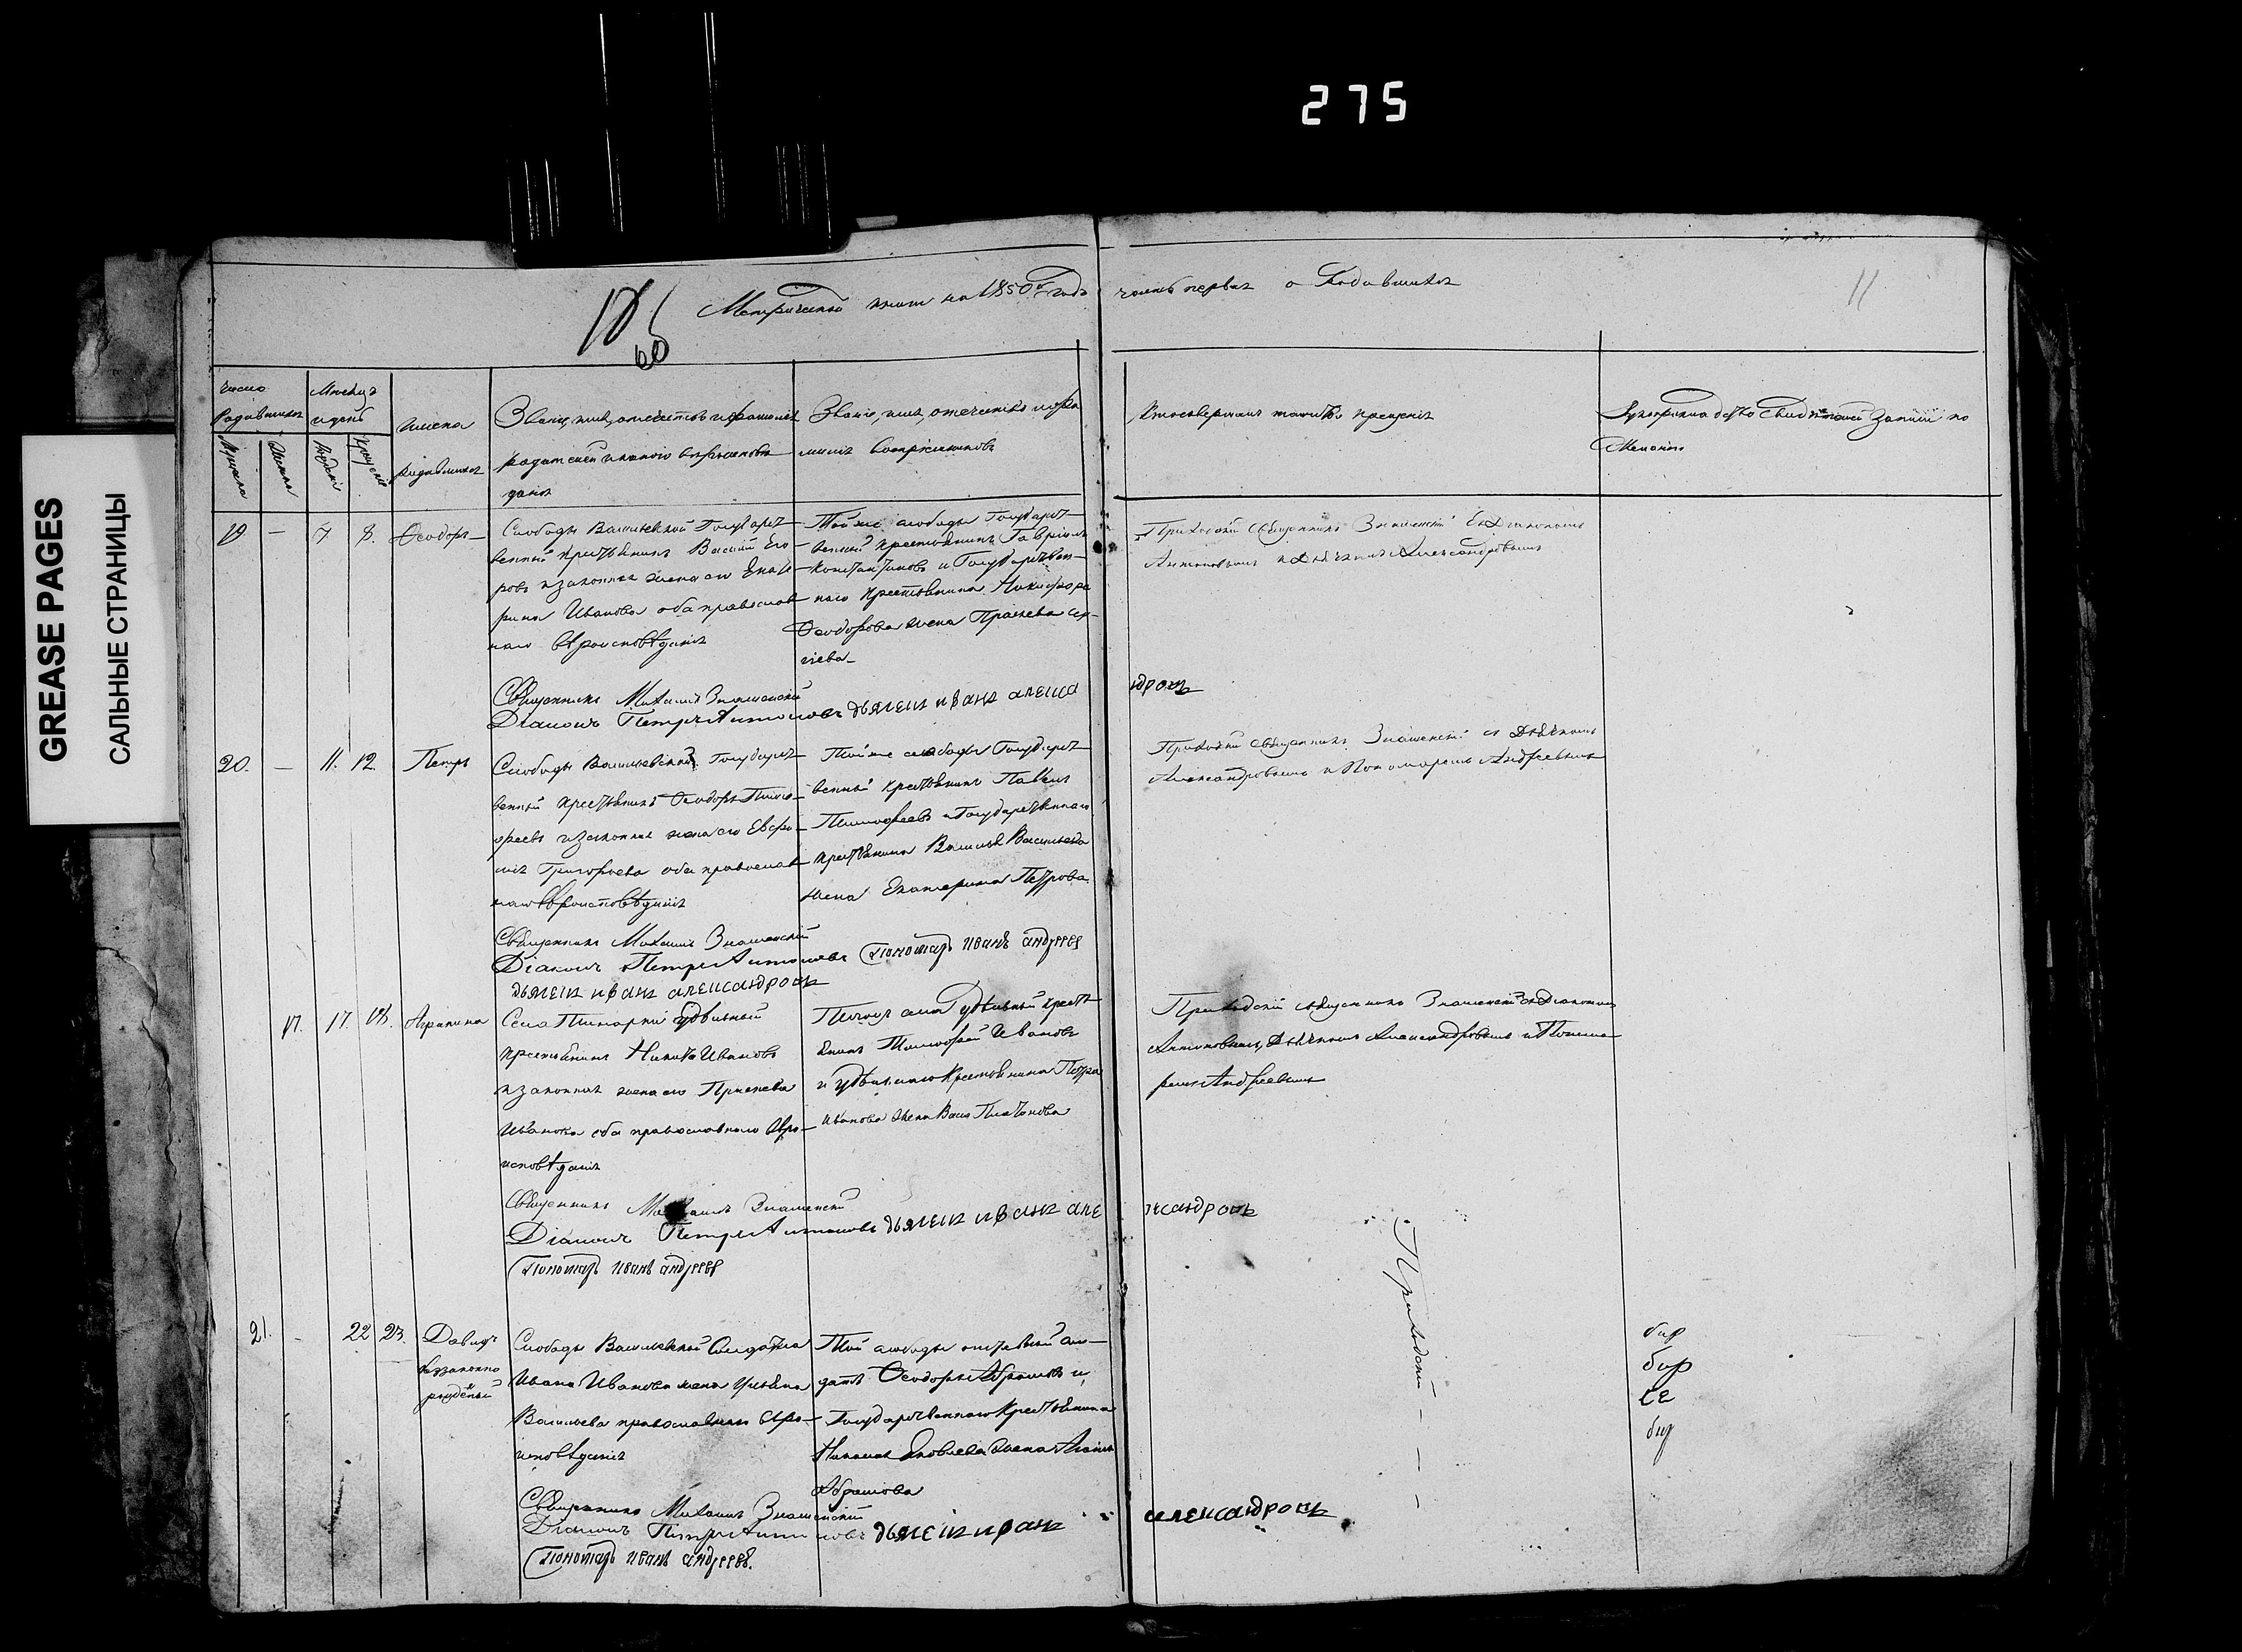 275
GREASE PAGES
САЛЬНЫЕ СТРАНИЦЫ
11
Метрической книги на 1850й годъ часть первая о Родившихся
60
Число Родившихся
Мужеска
Женска
Мѣсяцъ и день
Рожденія
Крещенія
Имена родившихся
Званіе, имя, отечество и фамилія
родителей и какого вѣроисповѣ
данія
Званіе, имя, отечество и фа
милія восприемниковъ
Кто совершалъ таинство крещенія
Рукоприкладство свидѣтелей записи по
желанію
19
—
7
8.
Ѳеодоръ
Слободы Васильевской Государст
венный крестьянинъ Василій Его
ровъ и законная жена его Екате
рина Иванова оба православ
наго вѣроисповѣданія
Той же слободы Государст
венный крестьянинъ Гавріилъ
Константиновъ и Государствен
наго крестьянина Никифора
Ѳеодорова жена Прасковья
Приходскій священникъ Знаменскій съ Діакономъ
Антоновымъ и Дьячкомъ Александровымъ
Священникъ Михаилъ Знаменскій
Діаконъ Петръ Антоновъ дьячекъ иванъ алекса
ндровъ
20.
—
11.
12.
Петръ
Слободы Васильевской Государст
венный крестьянинъ Ѳеодоръ Тимо
феевъ и законная жена его Евфро
сиія Григорьева оба православ
наго вѣроисповѣданія
Той же слободы Государст
венный крестьянинъ Павелъ
Тимофеевъ и Государственнаго
крестьянина Василья Васильева
жена Екатерина Петрова
Приходскій священникъ Знаменскій съ Дьячкомъ
Александровымъ и Пономаремъ Андреевымъ
Священникъ Михаилъ Знаменскій
Діаконъ Петръ Антоновъ Пономарь иванъ андреевъ
дьячекъ иванъ александровъ
17.
17.
18.
Агрипина
Села удѣльный
крестьянинъ Никита Ивановъ
и законная жена его Прасковья
Иванова оба православнаго вѣро
исповѣданія
Того же села удѣльный кресть
янинъ Тимофей Ивановъ
и удѣльнаго крестьянина Петра
Иванова жена Васса Платонова
Приходскій священникъ Знаменскій съ Діакономъ
Антоновымъ, Дьячкомъ Александровымъ и Понома
ремъ Андреевымъ
Священникъ Михаилъ Знаменскій
Діаконъ Петръ Антоновъ дьячекъ иванъ але
ксандровъ
Пономарь иванъ андреевъ
21.
-
22
23.
Давидъ
незаконно
рожденый
Слободы Васильевской Солдата
Ивана Иванова жена Ульяна
Васильева православнаго вѣро
исповѣданія
Той слободы отставный сол
датъ Ѳеодоръ Абрамовъ и
Государственнаго Крестьянина
Николая Яковлева жена
Абрамова
Приходскій
Священникъ Михаилъ Знаменскій
Діаконъ Петръ Антоновъ дьячекъ иванъ
александровъ
Пономарь иванъ андреевъ.